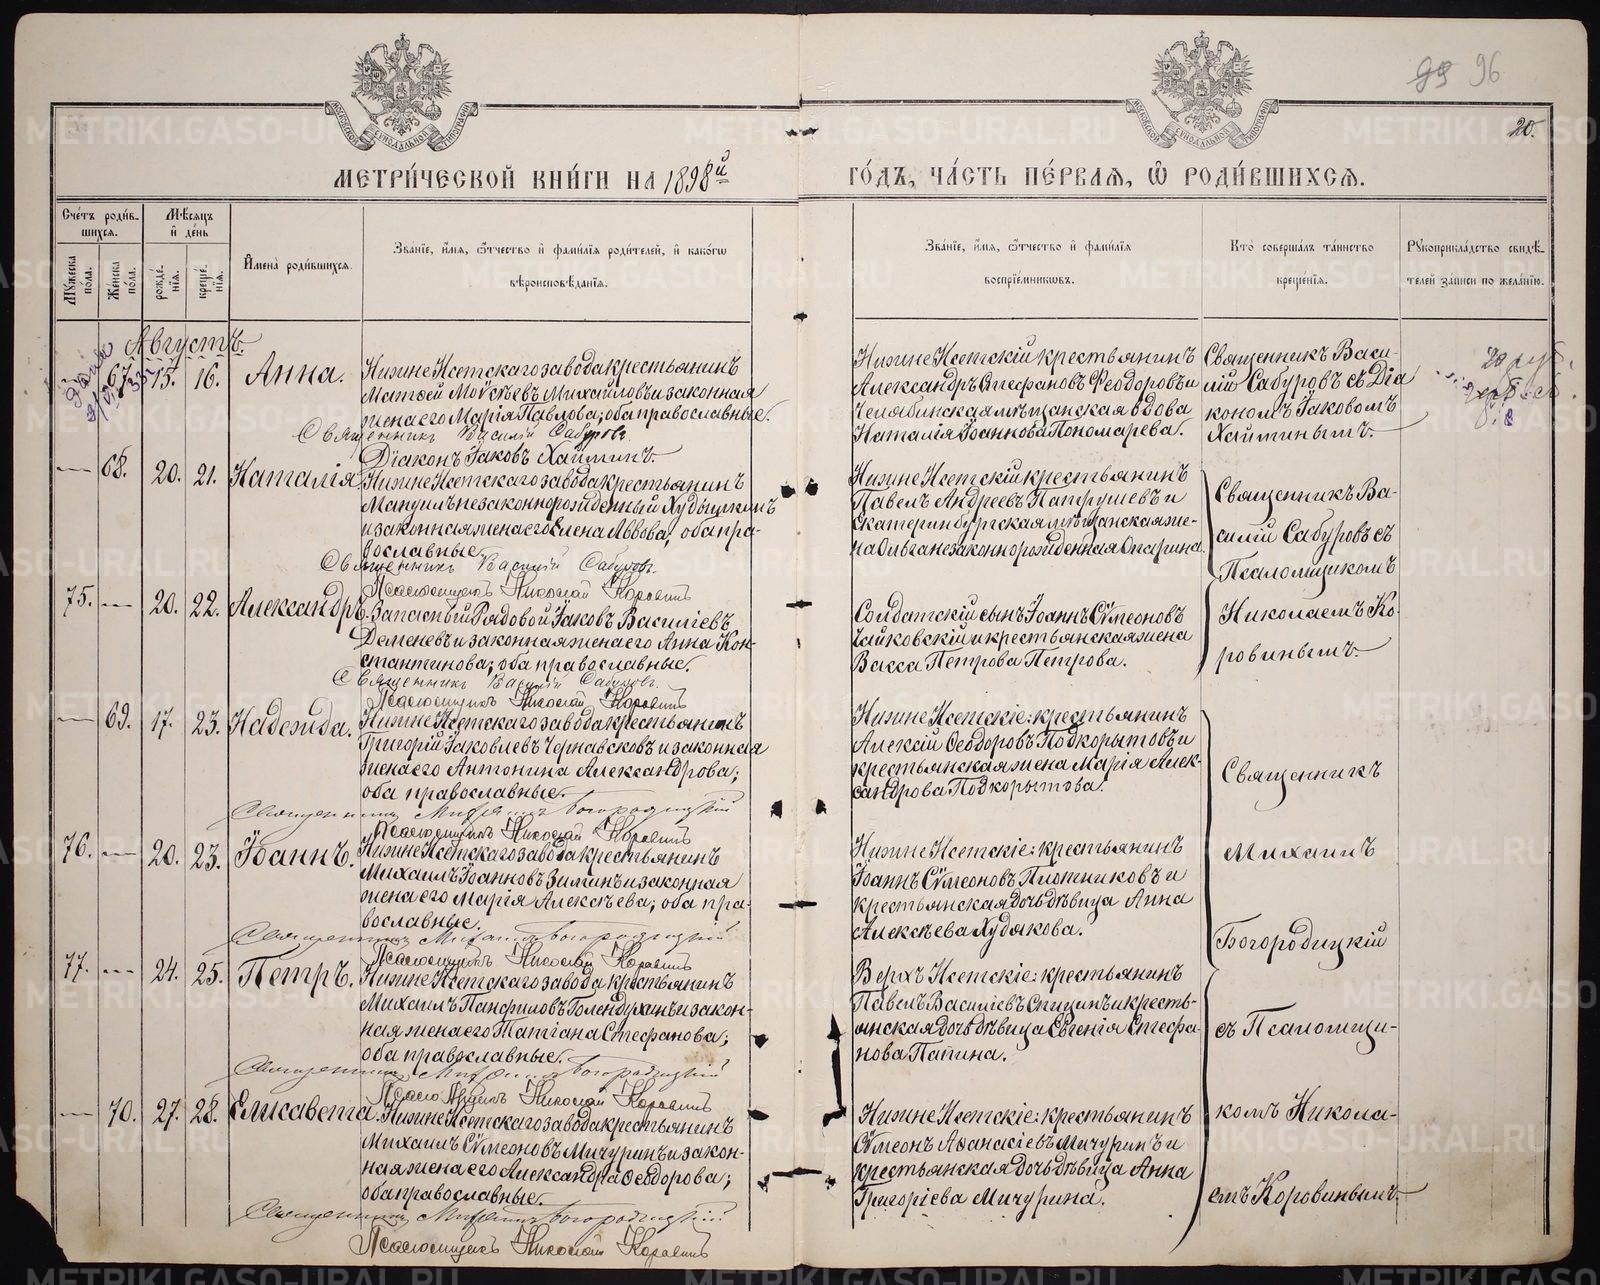 96
20.
МЕТРИ́ЧЕСКОЙ КНИ́ГИ НА 1898й
ГО́ДЪ, ЧА́СТЬ ПЕ́РВАЯ, Ѡ РОДИ́ВШИХСЯ.
Сче́тъ роди́в-
шихся.
Мѣ́сяцъ
и́ де́нь
Мꙋ́жеска
по́ла.
Же́нска
по́ла.
рожде́-
нїя.
креще́-
нїя.
И҆мена̀ роди́вшихся.
Зва́нїе, и҆́мя, ѻ҆́тчество и҆ фами́лїя роди́телей, и҆ како́гѡ
вѣроисповѣ́данїя.
Зва́нїе, и҆́мя, ѻ҆́тчество и҆ фами́лїя
воспрїе́мникѡвъ.
Кто̀ соверша́лъ та́инство
креще́нїя.
Рꙋкоприкла́дство свидѣ́-
телей за́писи по жела́нїю.
Августъ.
— 67. 15. 16. Анна.
Нижне Исетскаго завода крестьянинъ
Матѳей Моѵсѣевъ Михайловъ и законная
жена его Марія Павлова; оба православные.
Священникъ Василій Сабуровъ.
Діаконъ Іаковъ Хайминъ.
Нижне Исетскій крестьянинъ
Александръ Стефановъ Феодоровъ и
Челябинская мѣщанская вдова
Наталія Іоаннова Пономарева.
Священникъ Васи-
лій Сабуровъ съ Діа
кономъ Іаковомъ
Хайминымъ.
— 68. 20. 21. Наталія
Нижне Исетскаго завода крестьянинъ
Мануилъ незаконнорожденный Худышкинъ
и законная жена его Елена Львова; оба пра-
вославные.
Священникъ Василій Сабуровъ.
Псаломщикъ Николай Коровинъ
Нижне Исетскій крестьянинъ
Павелъ Андреевъ Патрушевъ и
Екатеринбургская мѣщанская же-
на Ольга незаконнорожденная Опарина.
Священникъ Ва-
силій Сабуровъ съ
Псаломщикомъ
75. — 20. 22. Александръ.
Запасный Рядовой Іаковъ Василіевъ
Деменевъ и законная жена его Анна Кон-
стантинова; оба православные.
Священникъ Василій Сабуровъ.
Псаломщикъ Николай Коровинъ
Солдатскій сынъ Іоаннъ Сѵмеоновъ
Чайковскій и крестьянская жена
Васса Петрова Петрова.
Николаемъ Ко-
ровинымъ.
— 69. 17. 23. Надежда.
Нижне Исетскаго завода крестьянинъ
Григорій Іаковлевъ Чернавсковъ и законная
жена его Антонина Александрова;
оба православные.
Священникъ Михаилъ Богородицкій
Псаломщикъ Николай Коровинъ
Нижне Исетскіе: крестьянинъ
Алексій Ѳеодоровъ Подкорытовъ и
крестьянская жена Марія Алек-
сандрова Подкорытова.
Священникъ
76. — 20. 23. Іоаннъ.
Нижне Исетскаго завода крестьянинъ
Михаилъ Іоанновъ Зиминъ и законная
жена его Марія Алексѣева; оба пра-
вославные.
Священникъ Михаилъ Богородицкій
Псаломщикъ Николай Коровинъ
Нижне Исетскіе: крестьянинъ
Іоаннъ Сѵмеоновъ Плотниковъ и
крестьянская дочь дѣвица Анна
Алексѣева Худякова.
Михаилъ
Богородицкій
77. — 24. 25. Петръ.
Нижне Исетскаго завода крестьянинъ
Михаилъ Панфиловъ Голендухинъ и закон-
ная жена его Татіана Стефанова;
оба православные.
Священникъ Михаилъ Богородицкій
Псаломщикъ Николай Коровинъ
Верхъ Исетскіе: крестьянинъ
Павелъ Василіевъ Спицинъ и кресть-
янская дочь дѣвица Евгенія Стефа-
нова Папина.
съ Псаломщи-
— 70. 27. 28. Елисавета.
Нижне Исетскаго завода крестьянинъ
Михаилъ Сѵмеоновъ Мичуринъ и закон-
ная жена его Александра Ѳеодорова;
оба православные.
Священникъ Михаилъ Богородицкій
Псаломщикъ Николай Коровинъ
Нижне Исетскіе: крестьянинъ
Сѵмеонъ Аѳанасіевъ Мичуринъ и
крестьянская дочь дѣвица Анна
Григоріева Мичурина.
комъ Никола-
емъ Коровинымъ.
METRIKI.GASO-URAL.RU